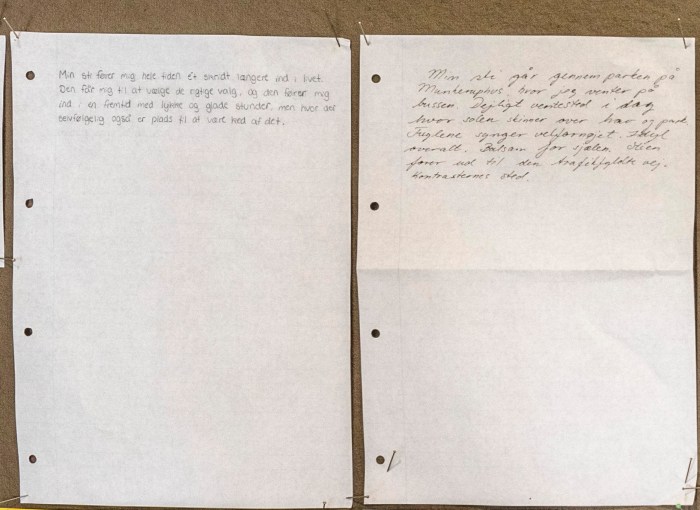 Min sti fører mig hele tiden ét skridt længere ind i livet.
Den får mig til at vælge de rigtige valg, og den fører mig
ind i en fremtid med lykke og glade stunder, men hvor der
selvfølgelig også er plads til at være ked af det.
Min sti går gennem parken på
hvor jeg venter på
bussen. Dejligt ventested i dag
hvor solen skinner over hav og park.
Fuglene synger velfornøjet. Idyl
overalt. Balsam for sjælen. Stien
fører ud til den trafikfyldte vej.
Kontrasternes sted.